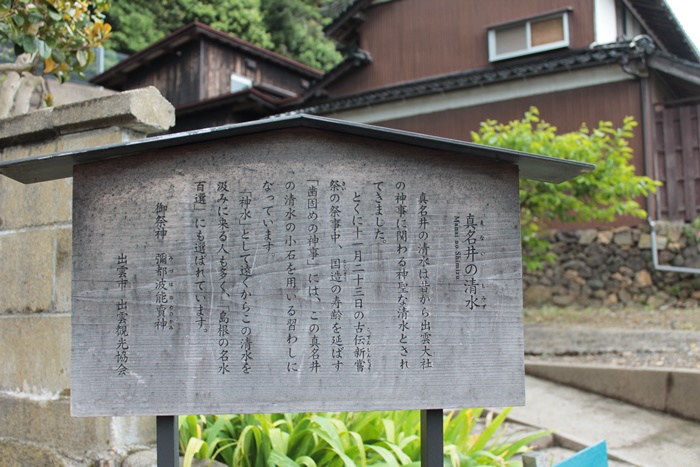 真名井の清水
まないのしみず
Manai no Shimizu
真名井の清水は昔から出雲大社
の神事に関わる神聖な清水とされ
てきました。
とくに十一月二十三日の古伝新嘗
こでんしんじょう
祭の祭事中、国造の寿齢を延ばす
さい
「歯固めの神事」には、この真名井
の清水の小石を用いる習わしに
なっています
「神水」として遠くからこの清水を
汲みに来る人も多く、「島根の名水
百選」にも選ばれています。
御祭神 彌都波能賣神
みづはのめのかみ
出雲市・出雲観光協会